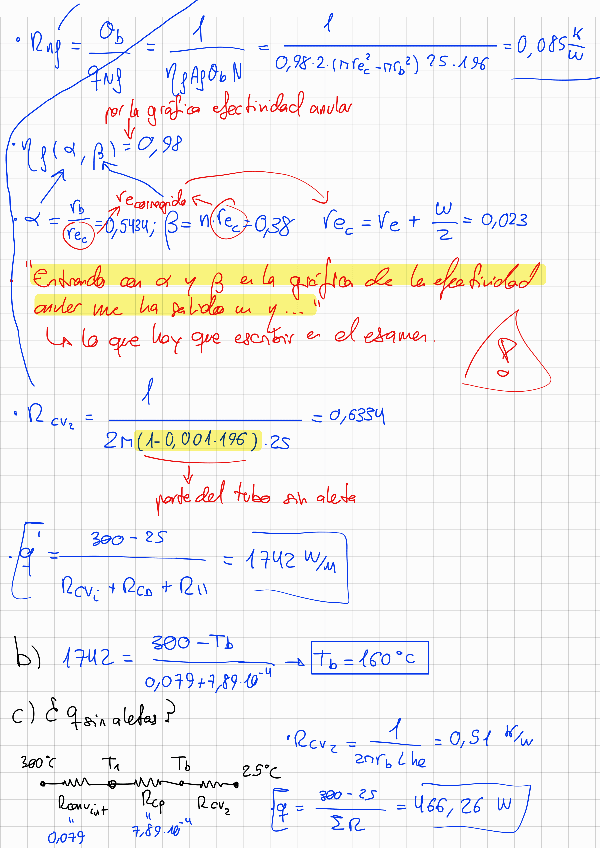 · R_Nf = θ_b / q_Nf = 1 / (η_f A_f θ_b N) = 1 / (0,98·2·(π r_ec² - π r_b²) 25·196) = 0,085 K/W
por la gráfica efectividad anular
· η_f (α, β) = 0,98
r_e corregido
· α = r_b / r_ec = 0,5434; β = n · r_ec = 0,38 r_ec = r_e + w/2 = 0,023
"Entrando con α y β en la gráfica de la efectividad
anular me ha salido un y..."
↳ lo que hay que escribir en el examen.
!
· R_CV2 = 1 / (2π (1-0,001·196)·25) = 0,6334
parte del tubo sin aleta
· q' = (300 - 25) / (R_CVi + R_CD + R_11) = 1742 W/m
b) 1742 = (300 - T_b) / (0,079 + 7,89·10⁻⁴) → T_b = 160°C
c) ¿ q sin aletas?
· R_CV2 = 1 / (2π r_b L h_e) = 0,51 K/W
300°C T_1 T_b 25°C
R_conv int R_CD R_CV2
" "
0,079 7,89·10⁻⁴
q = (300 - 25) / ΣR = 466,26 W